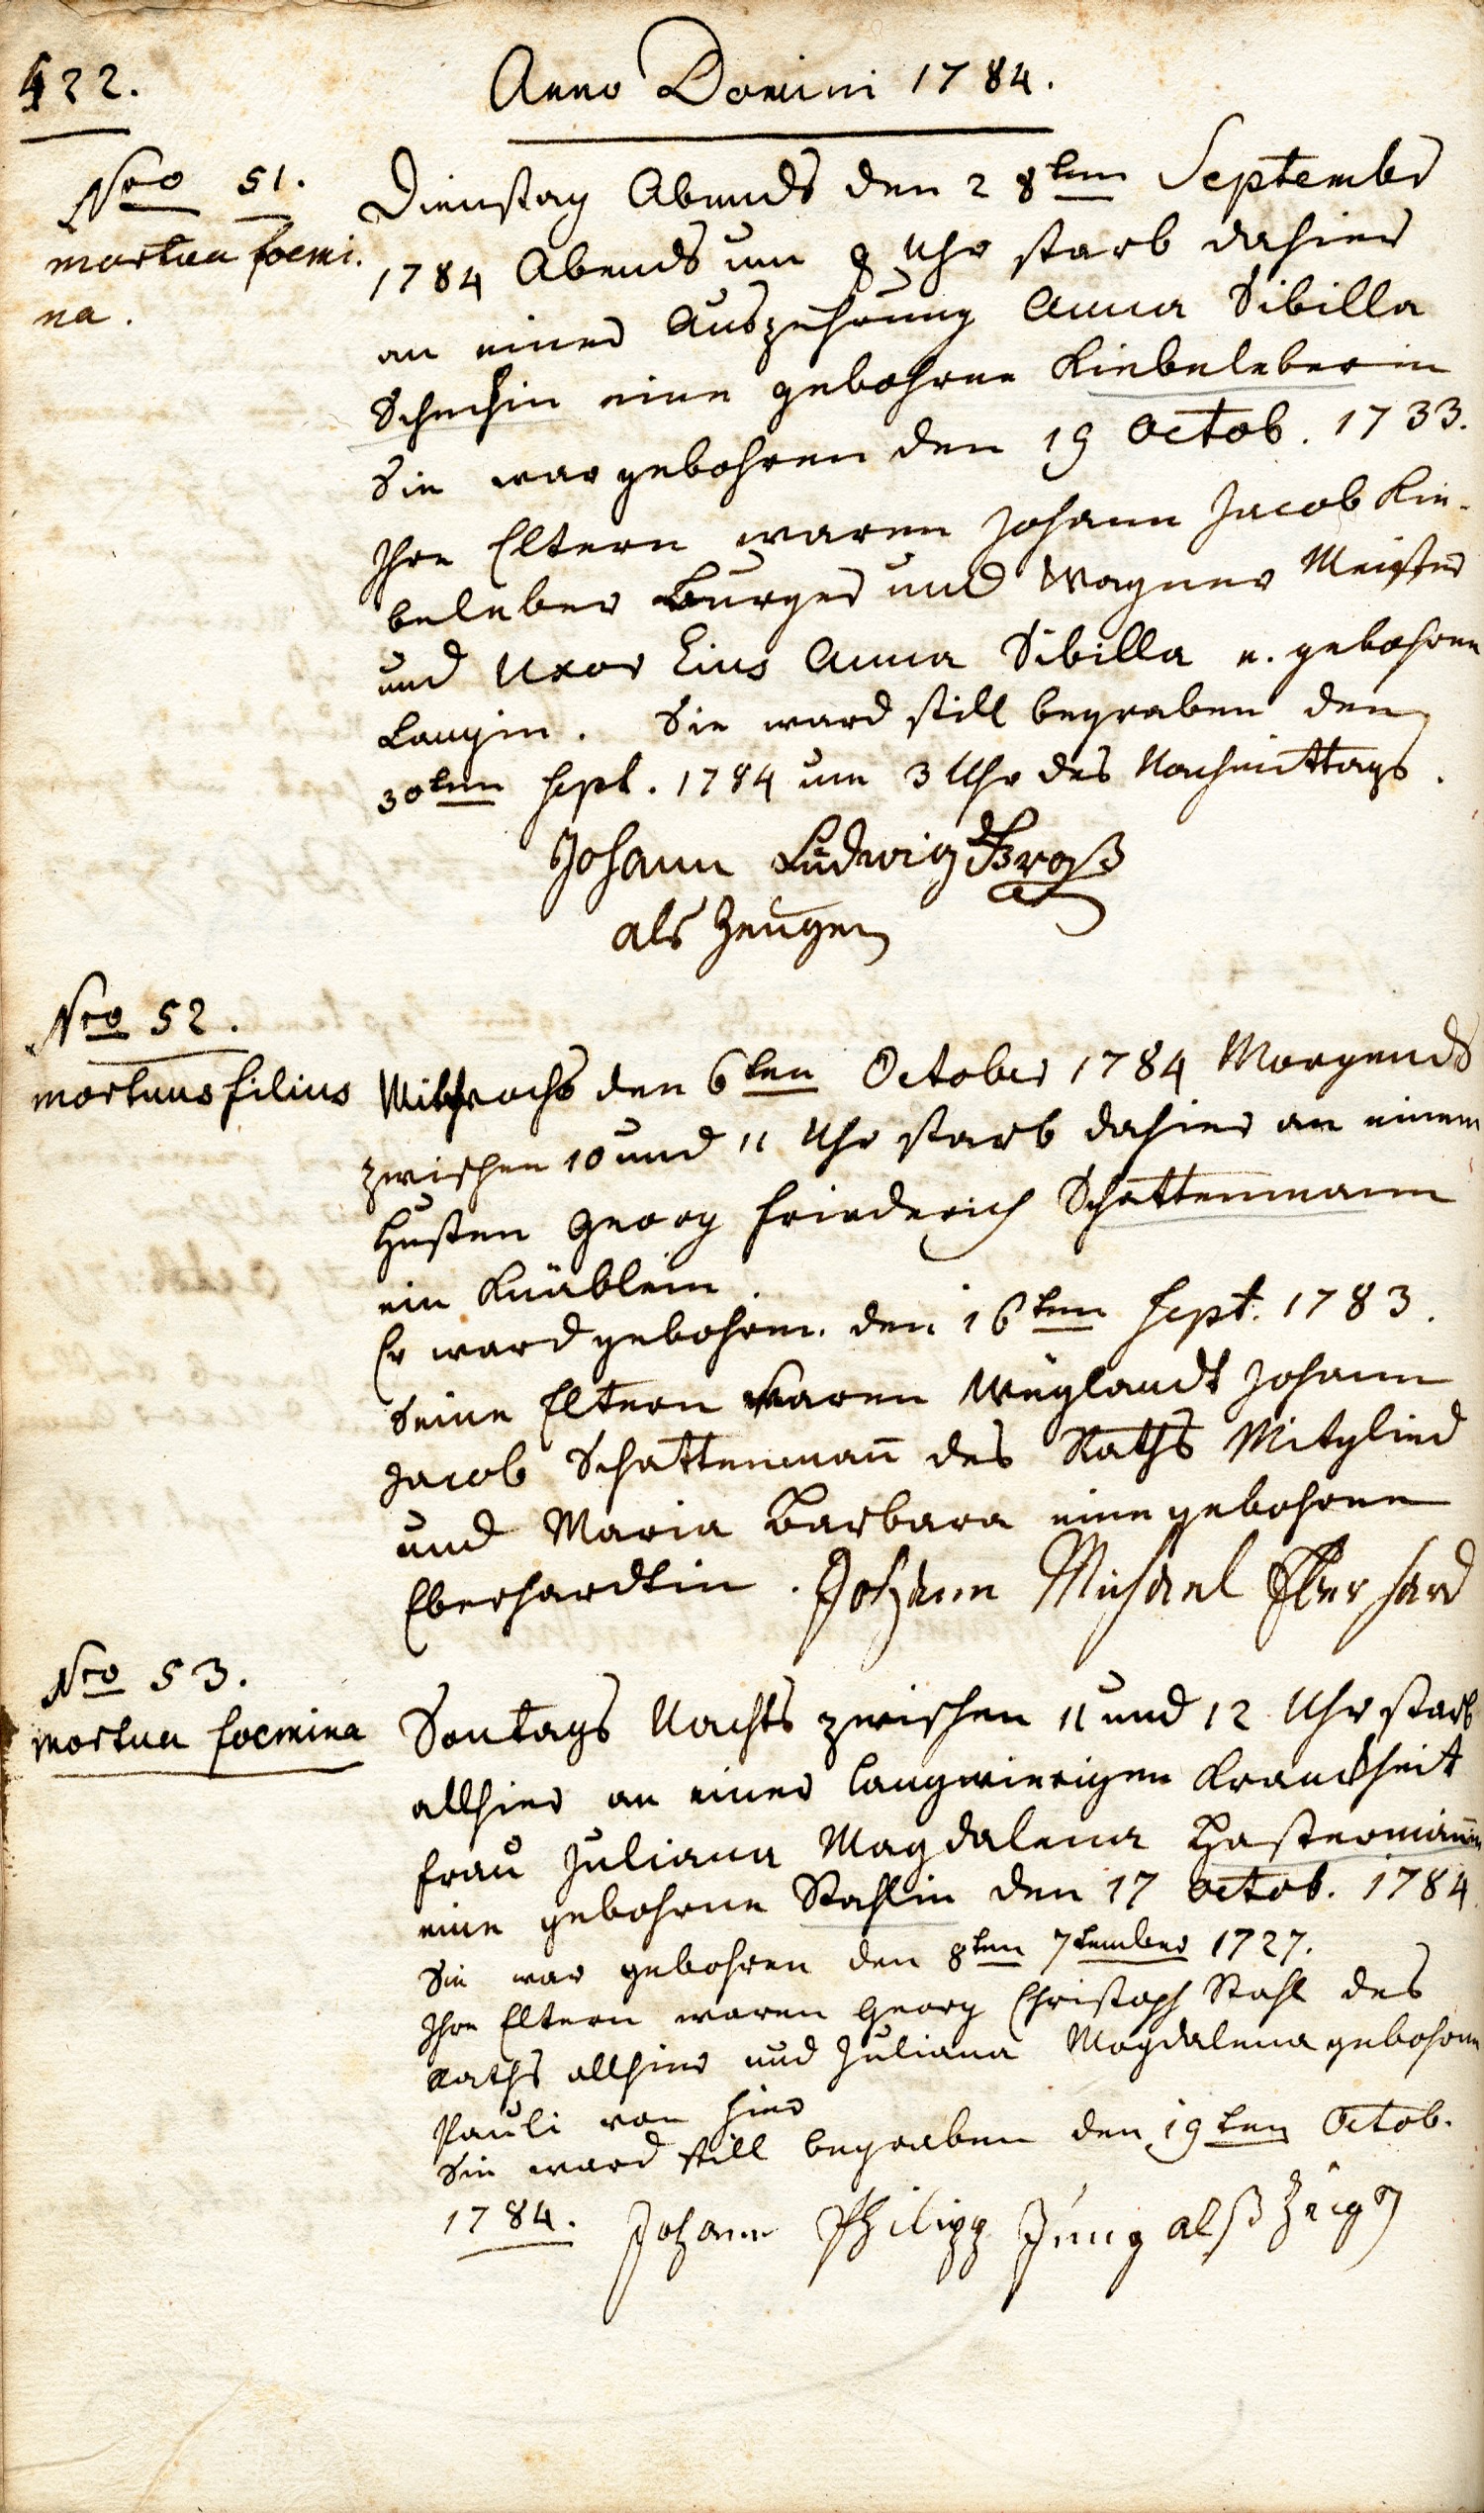 422.
Anno Domini 1784.
Nro 51.
mortua foemi-
na.
Dienstag Abends den 28ten Septembr
1784 Abends um 8 Uhr starb dahier
an einer Auszehrung Anna Sibilla
eine gebohrne Kiebeleberin
Sie war gebohren den 19 Octob. 1733.
Ihre Eltern waren Johann Jacob Kie-
beleber Burger und Wagner Meister
und Uxor Eius Anna Sibilla e. gebohrne
Langin. Sie ward still begraben den
30ten Sept. 1784 um 3 Uhr des Nachmittags.
Johann Ludwig Groß
als Zeugen
Nro 52.
mortuus filius
Mittwochs den 6ten October 1784 Morgends
zwischen 10 und 11 Uhr starb dahier an einem
Husten Georg Friederich Schattenmann
ein Knäblein.
Er ward gebohren. den 16ten Sept. 1783.
Seine Eltern waren Weylandt Johann
Jacob Schattenman̅ des Raths Mitglied
und Maria Barbara eine gebohrne
Eberhardtin. Johann Michael Eberhard
Nro 53.
mortua foemina
Sontags Nachts zwischen 11 und 12 Uhr starb
allhier an einer langwierigen Kranckheit
Frau Juliana Magdalena
eine gebohrne Stahlin den 17 octob. 1784.
Sie war gebohren den 8ten 7tember 1727.
Ihre Eltern waren Georg Christoph Stahl des
Raths allhier und Juliana Magdalena gebohrne
Pauli von hier
Sie ward still begraben den 19ten Octob.
1784. Johann Philipp Jung alß Zeig